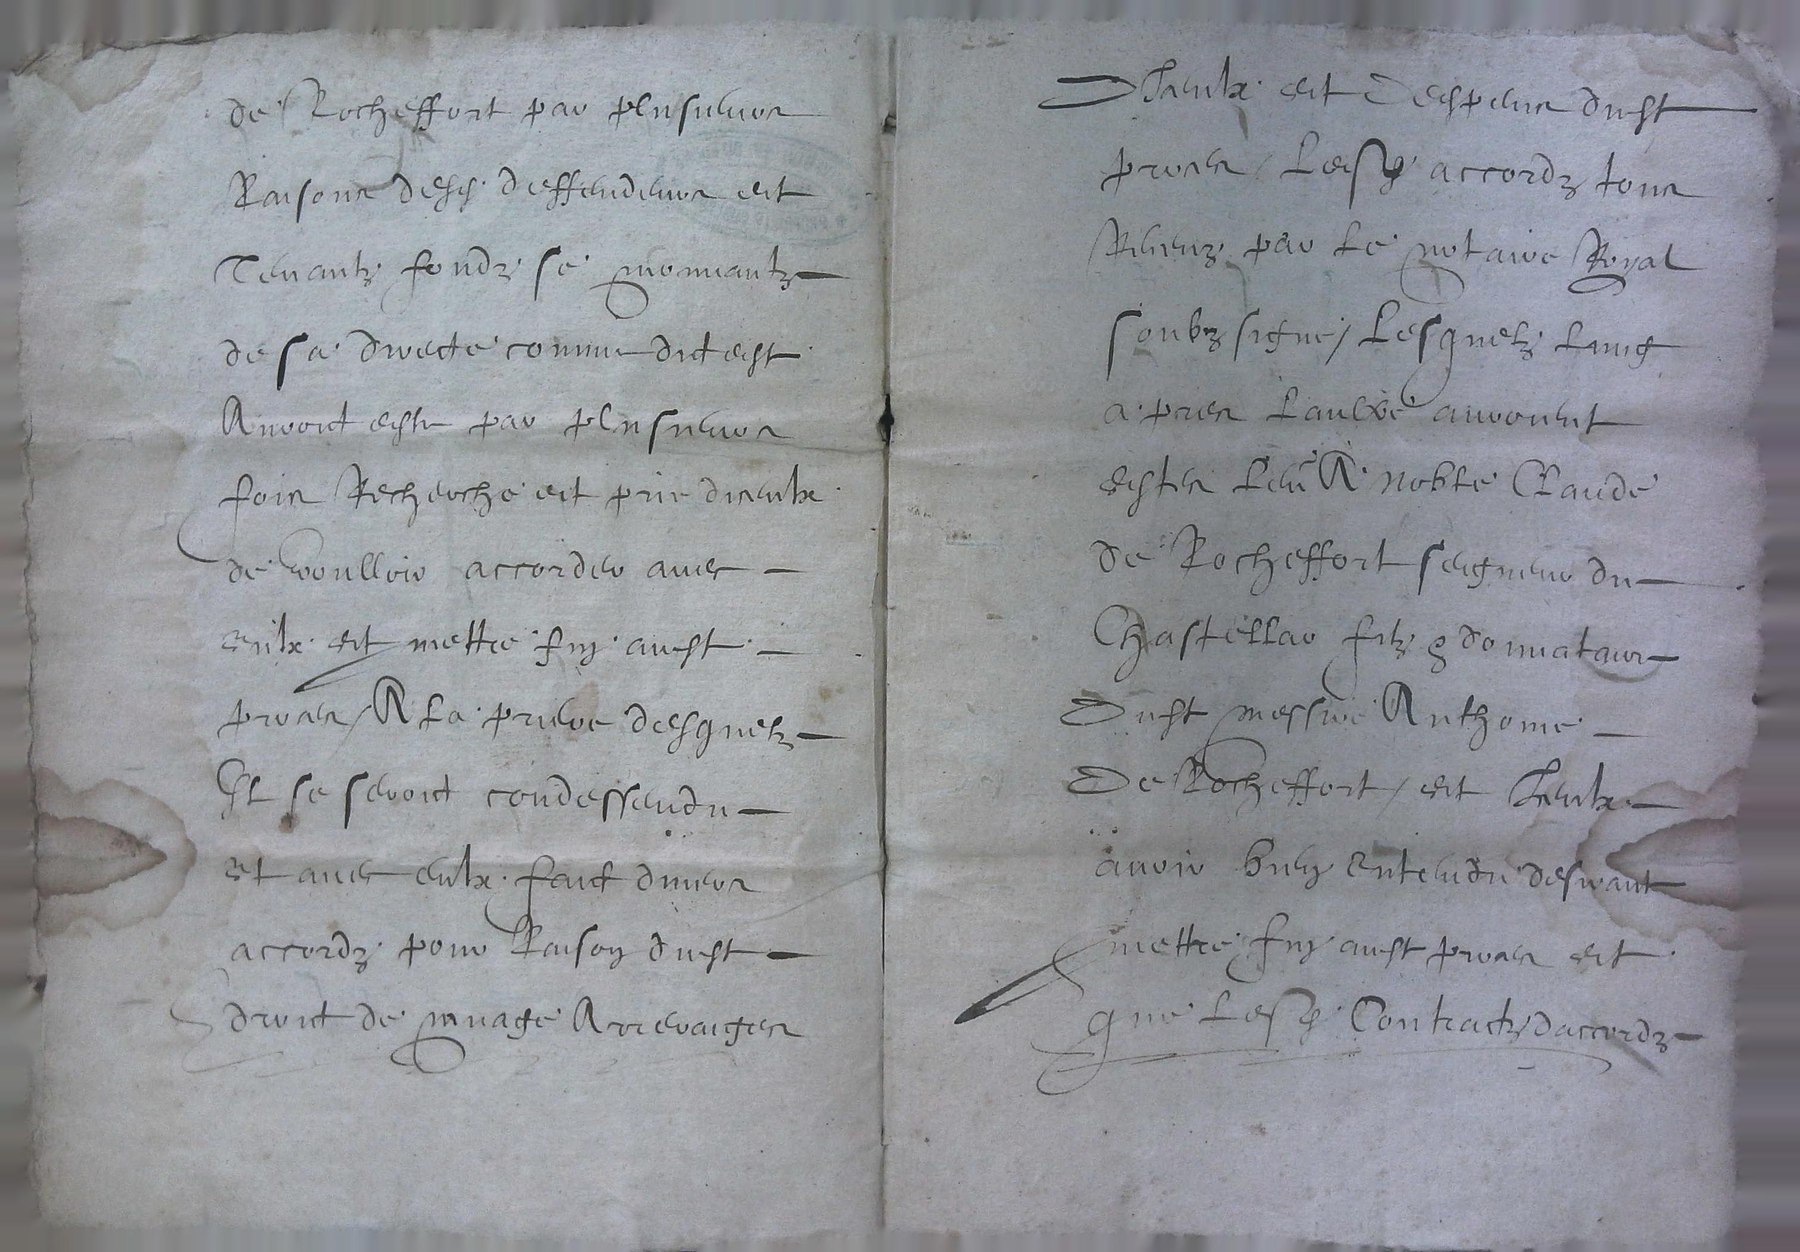 de Rocheffort par plusieurs
Raisons desd. deffendeurs et
Tenantz fondz se mouvantz
de sa directe comme dict est
Auroict esté par plusieurs
fois Recherché et prié diceulx
de voulloir accorder avec
eulx et mettre fin audit
proces / A la priere desquelz
Il se seroict condessendu
et avec eulx faict divers
accordz pour Raison dudit
droict de arreraiges
Diceulx et despens dudit
proces / Lesd. accordz tous
Receuz par le notaire Royal
soubz signé / Lesquelz Lung
apres Laultre auroient
estes leu A noble Claude
de Rocheffort seigneur du
Chastellar filz donnataire
Dudit messire Anthoine
De Rocheffort / et Iceulx
avoir bien entendu desirant
mettre fin audit proces et
que lesd. Contractz daccordz